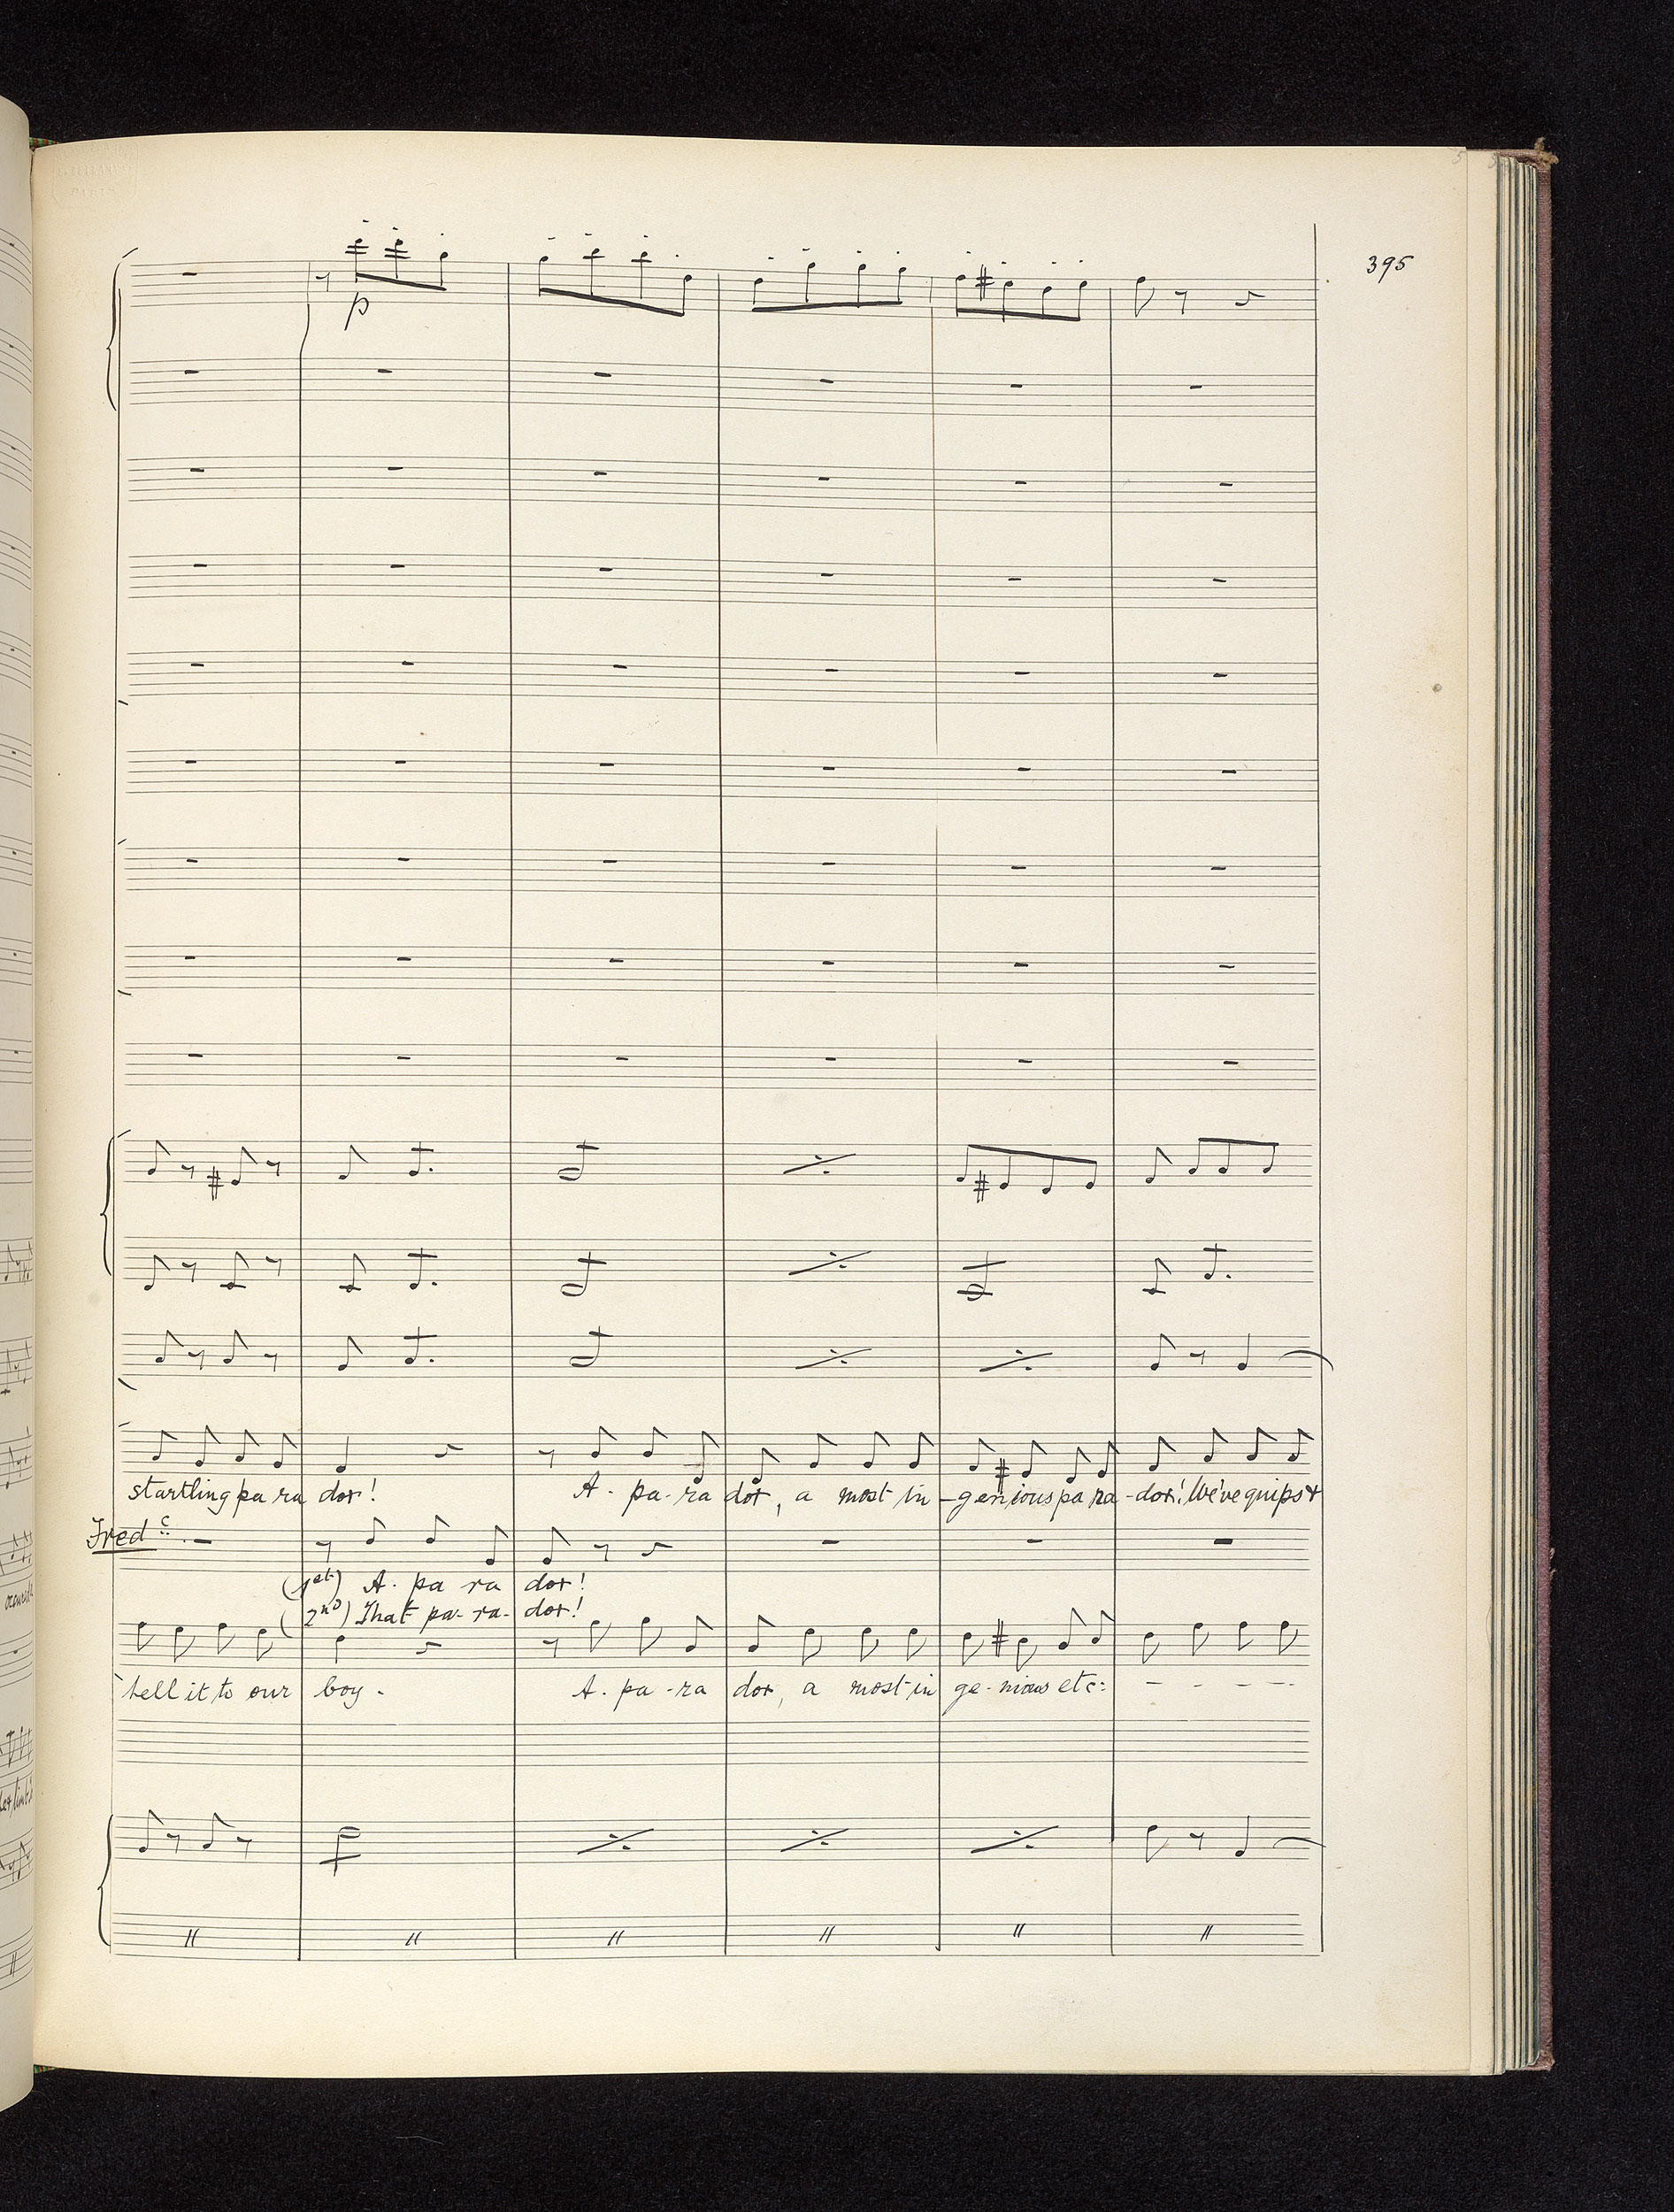 395
p
startling pa ra dox! A - pa - ra dox, a most in - genious pa ra - dox! We've quips &
Fred c
(1st) A - pa ra dox!
(2nd) That pa - ra - dox!
tell it to our boy. A - pa - ra dox, a most in ge - nious etc: